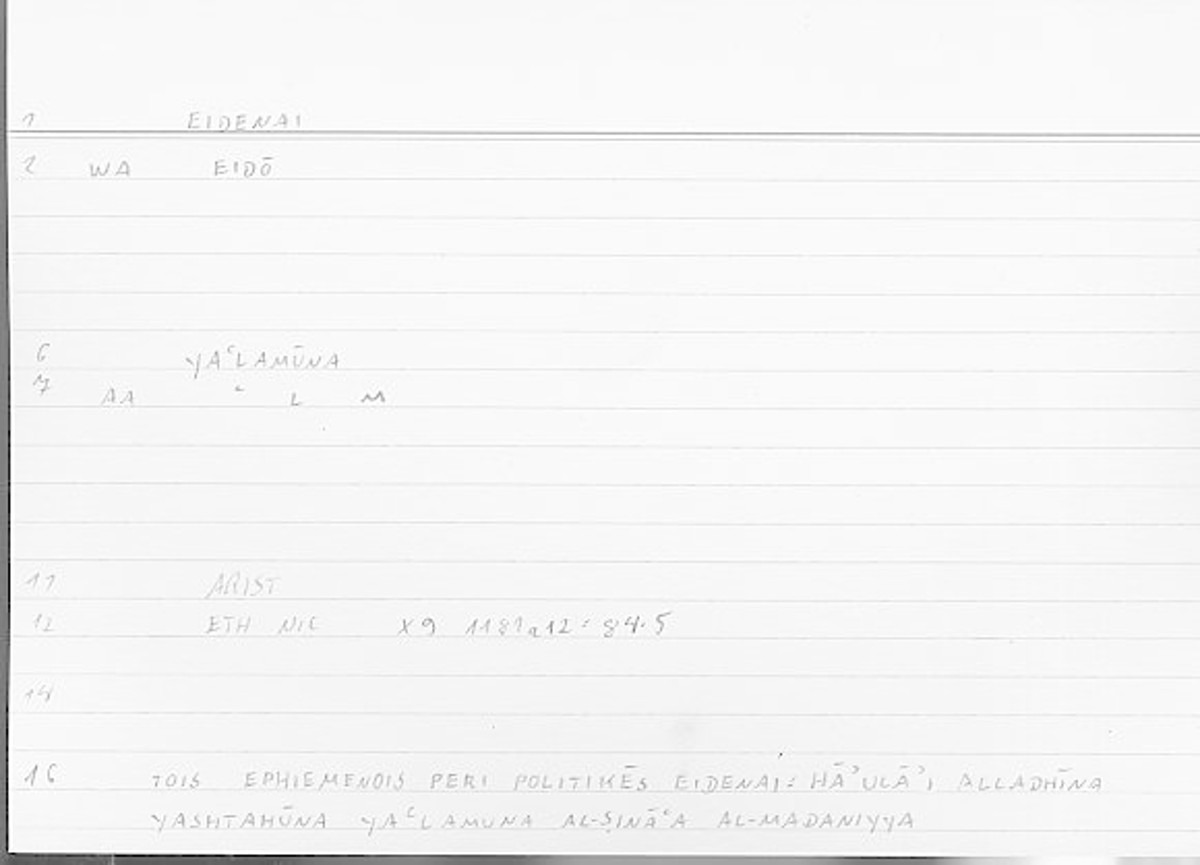 1 EIDENAI
2 WA EIDŌ
6 YAʿLAMŪNA
7 AA ʿ L M
11 ARIST
12 ETH NIC X 9 1181a12: 84.5
14
16 TOIS EPHIEMENOIS PERI POLITIKĒS EIDENAI: HĀʾULĀʾI ALLADHĪNA
YASHTAHŪNA YAʿLAMUNA AL-ṢINĀʿA AL-MADANIYYA